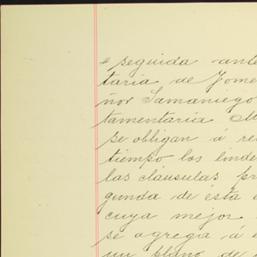 seguida ante
taria de Fome
ñor Samaniego
tamentaria
se obligan á re
tiempo los linde
las cláusulas pr
gunda de ésta
cuya mejor
se agrega á
un plano de